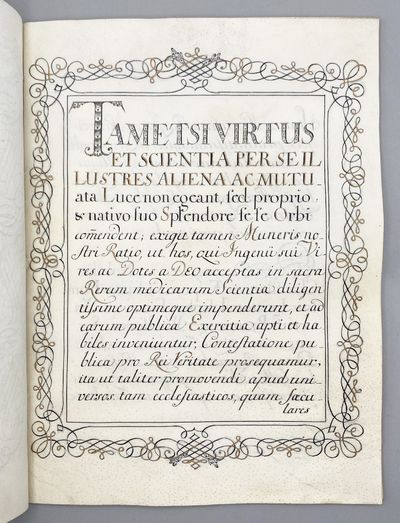 TAMETSI VIRTUS
ET SCIENTIA PER SE IL
LUSTRES ALIENA AC MUTU_
ata Luce non egeant, sed proprio,
& nativo suo Splendore se se Orbi
com̃endent; exigit tamen Muneris no
stri Ratio, ut hos, qui Ingenii sui Vi
res ac Dotes a DEO acceptas in sacra
Rerum medicarum Scientia diligen
tissime optimeque impenderunt, et ad
earum publica Exercitia apti et ha
biles inveniuntur, Contestatione pu
blica pro Rei Veritate prosequamur,
ita ut taliter promovendi apud uni
versos, tam ecclesiasticos, quam sæcu
lares